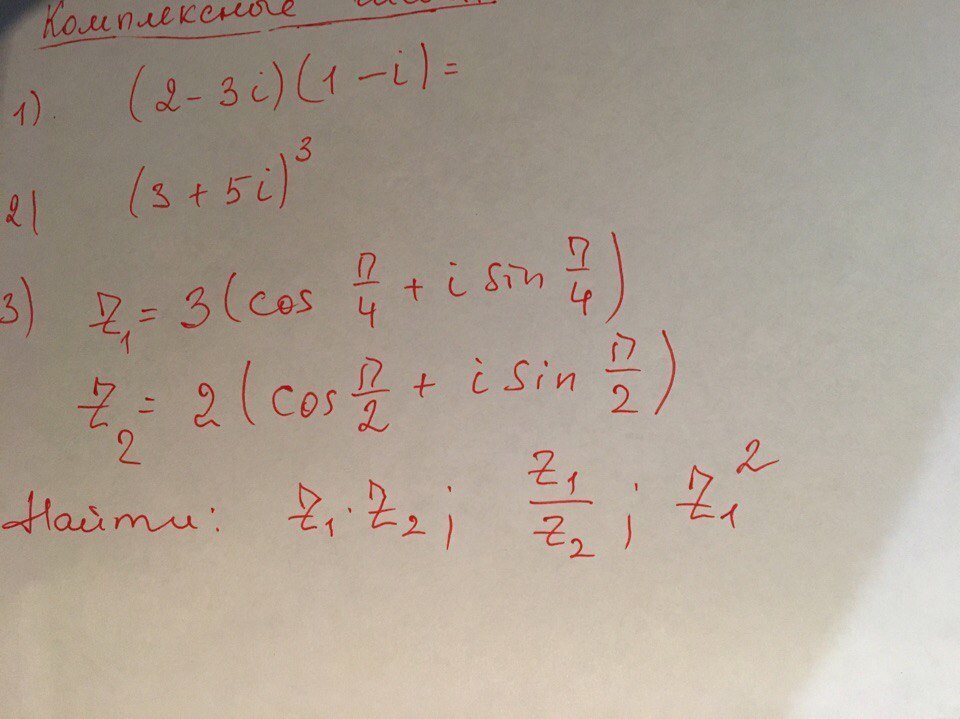 Комплексные
1). (2 - 3i)(1 - i) =
2) (3 + 5i)³
3) z₁ = 3(cos π/4 + i sin π/4)
z₂ = 2(cos π/2 + i sin π/2)
Найти: z₁ · z₂; z₁/z₂; z₁²